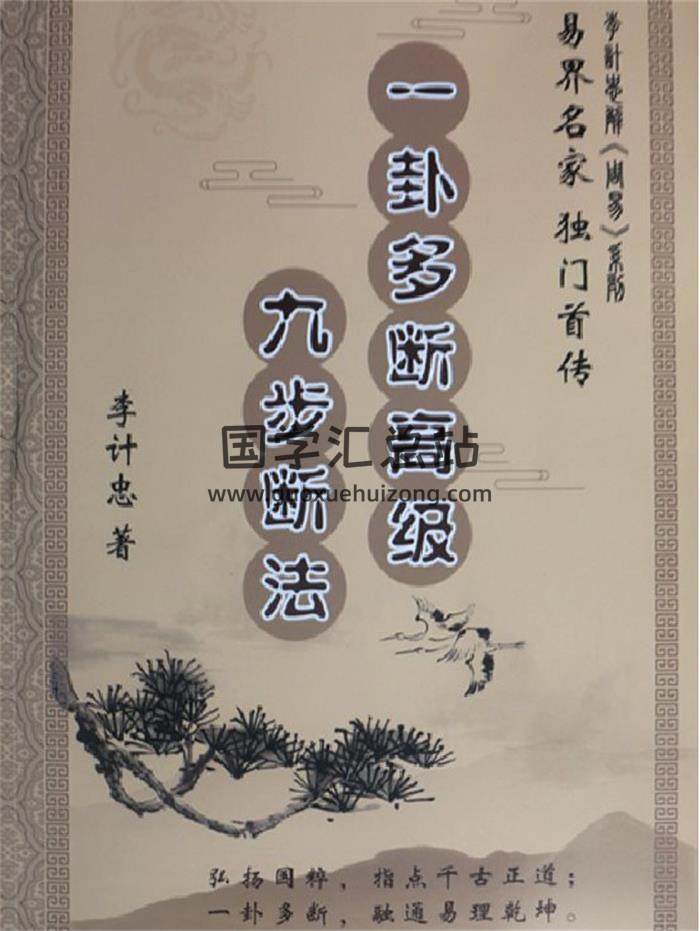 李计忠解《周易》系列
易界名家 独门首传
一卦多断高级
九步断法
李计忠 著
国学汇总站
www.guoxuehuizong.com
弘扬国粹，指点千古正道；
一卦多断，融通易理乾坤。